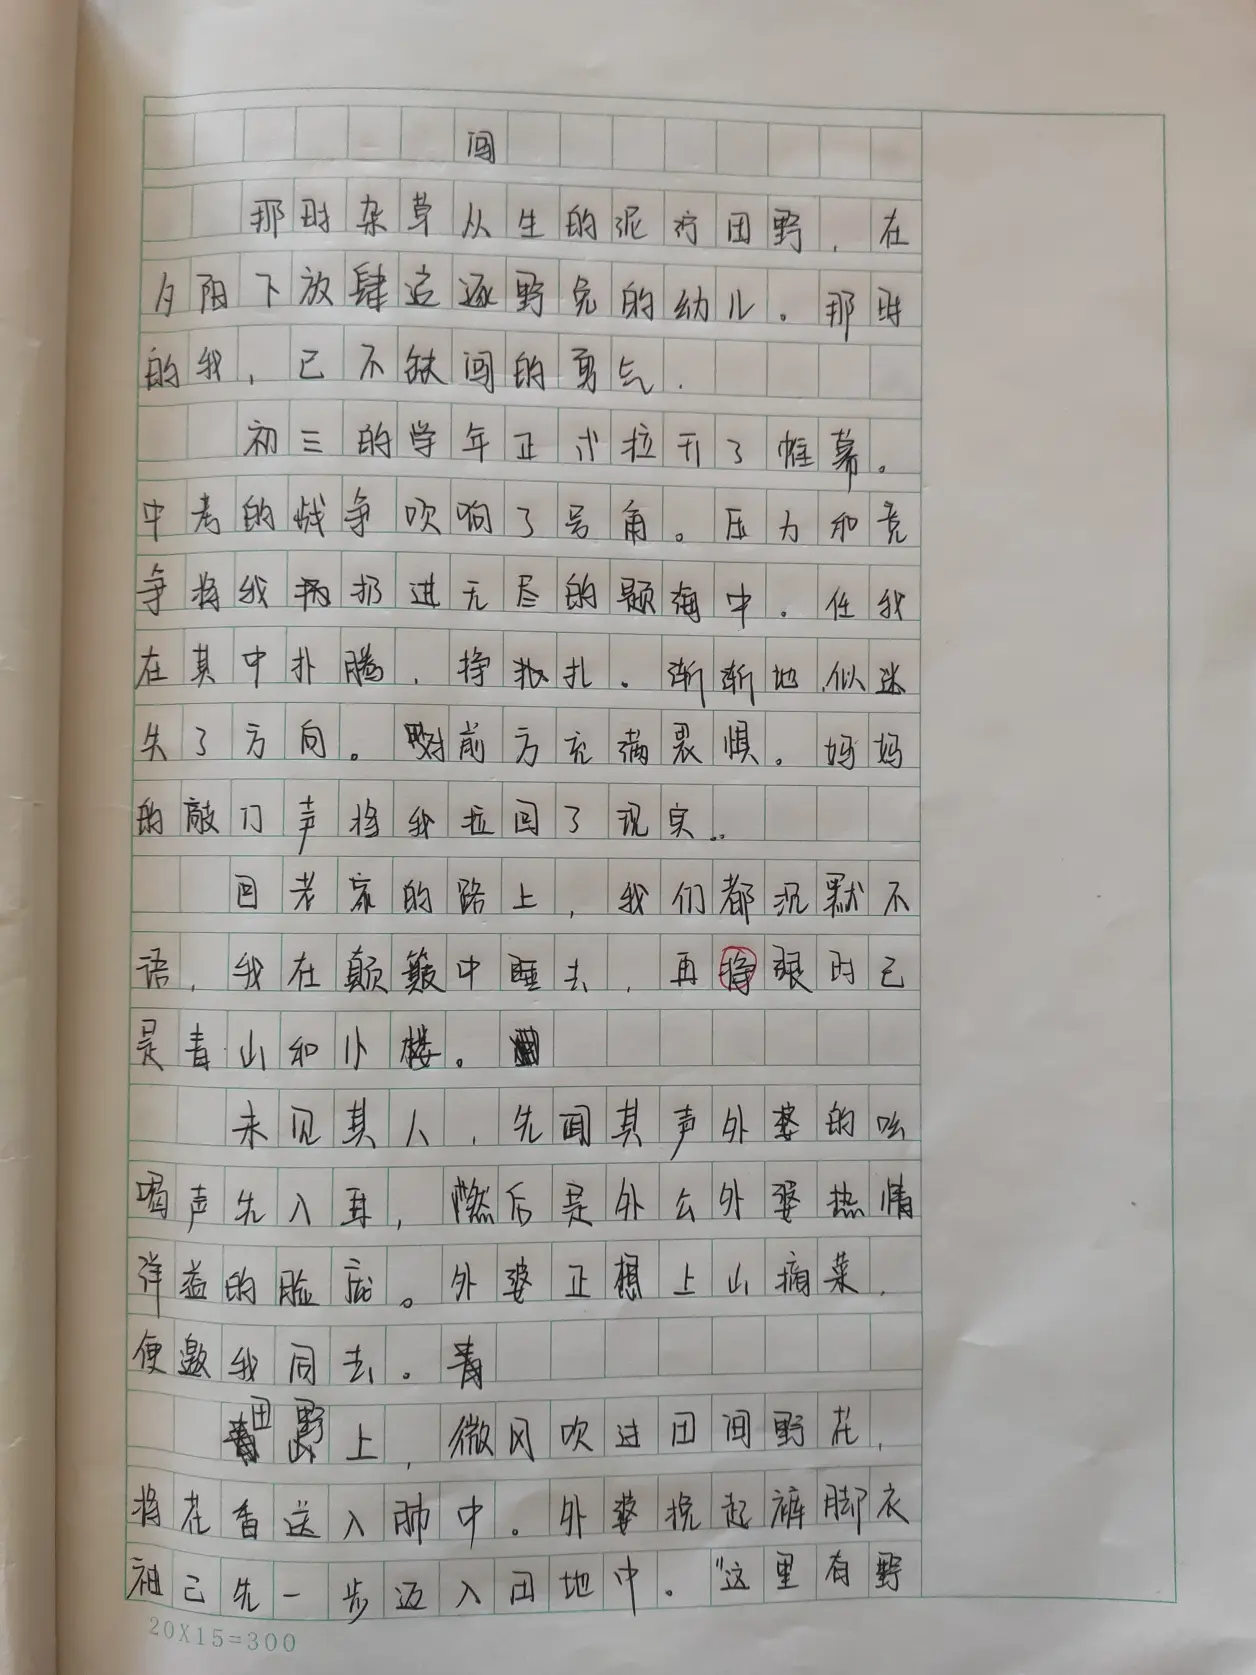 闯
那时杂草从生的泥泞田野，在
夕阳下放肆追逐野兔的幼儿。那时
的我，已不缺闯的勇气.
初三的学年正式拉开了帷幕。
中考的战争吹响了号角。压力和竞
争将我扔进无尽的题海中.任我
在其中扑腾，挣扎。渐渐地，似迷
失了方向。对前方充满畏惧。妈妈
的敲门声将我拉回了现实..
回老家的路上，我们都沉默不
语，我在颠簸中睡去，再睁眼时已
是青山和小楼。
未见其人，先闻其声外婆的吆
喝声先入耳，然后是外公外婆热情
洋益的脸庞。外婆正想上山摘菜，
便邀我同去。
田野上，微风吹过田间野花，
将花香送入肺中。外婆挽起裤脚衣
袖已先一步迈入田地中。“这里有野
20X15=300